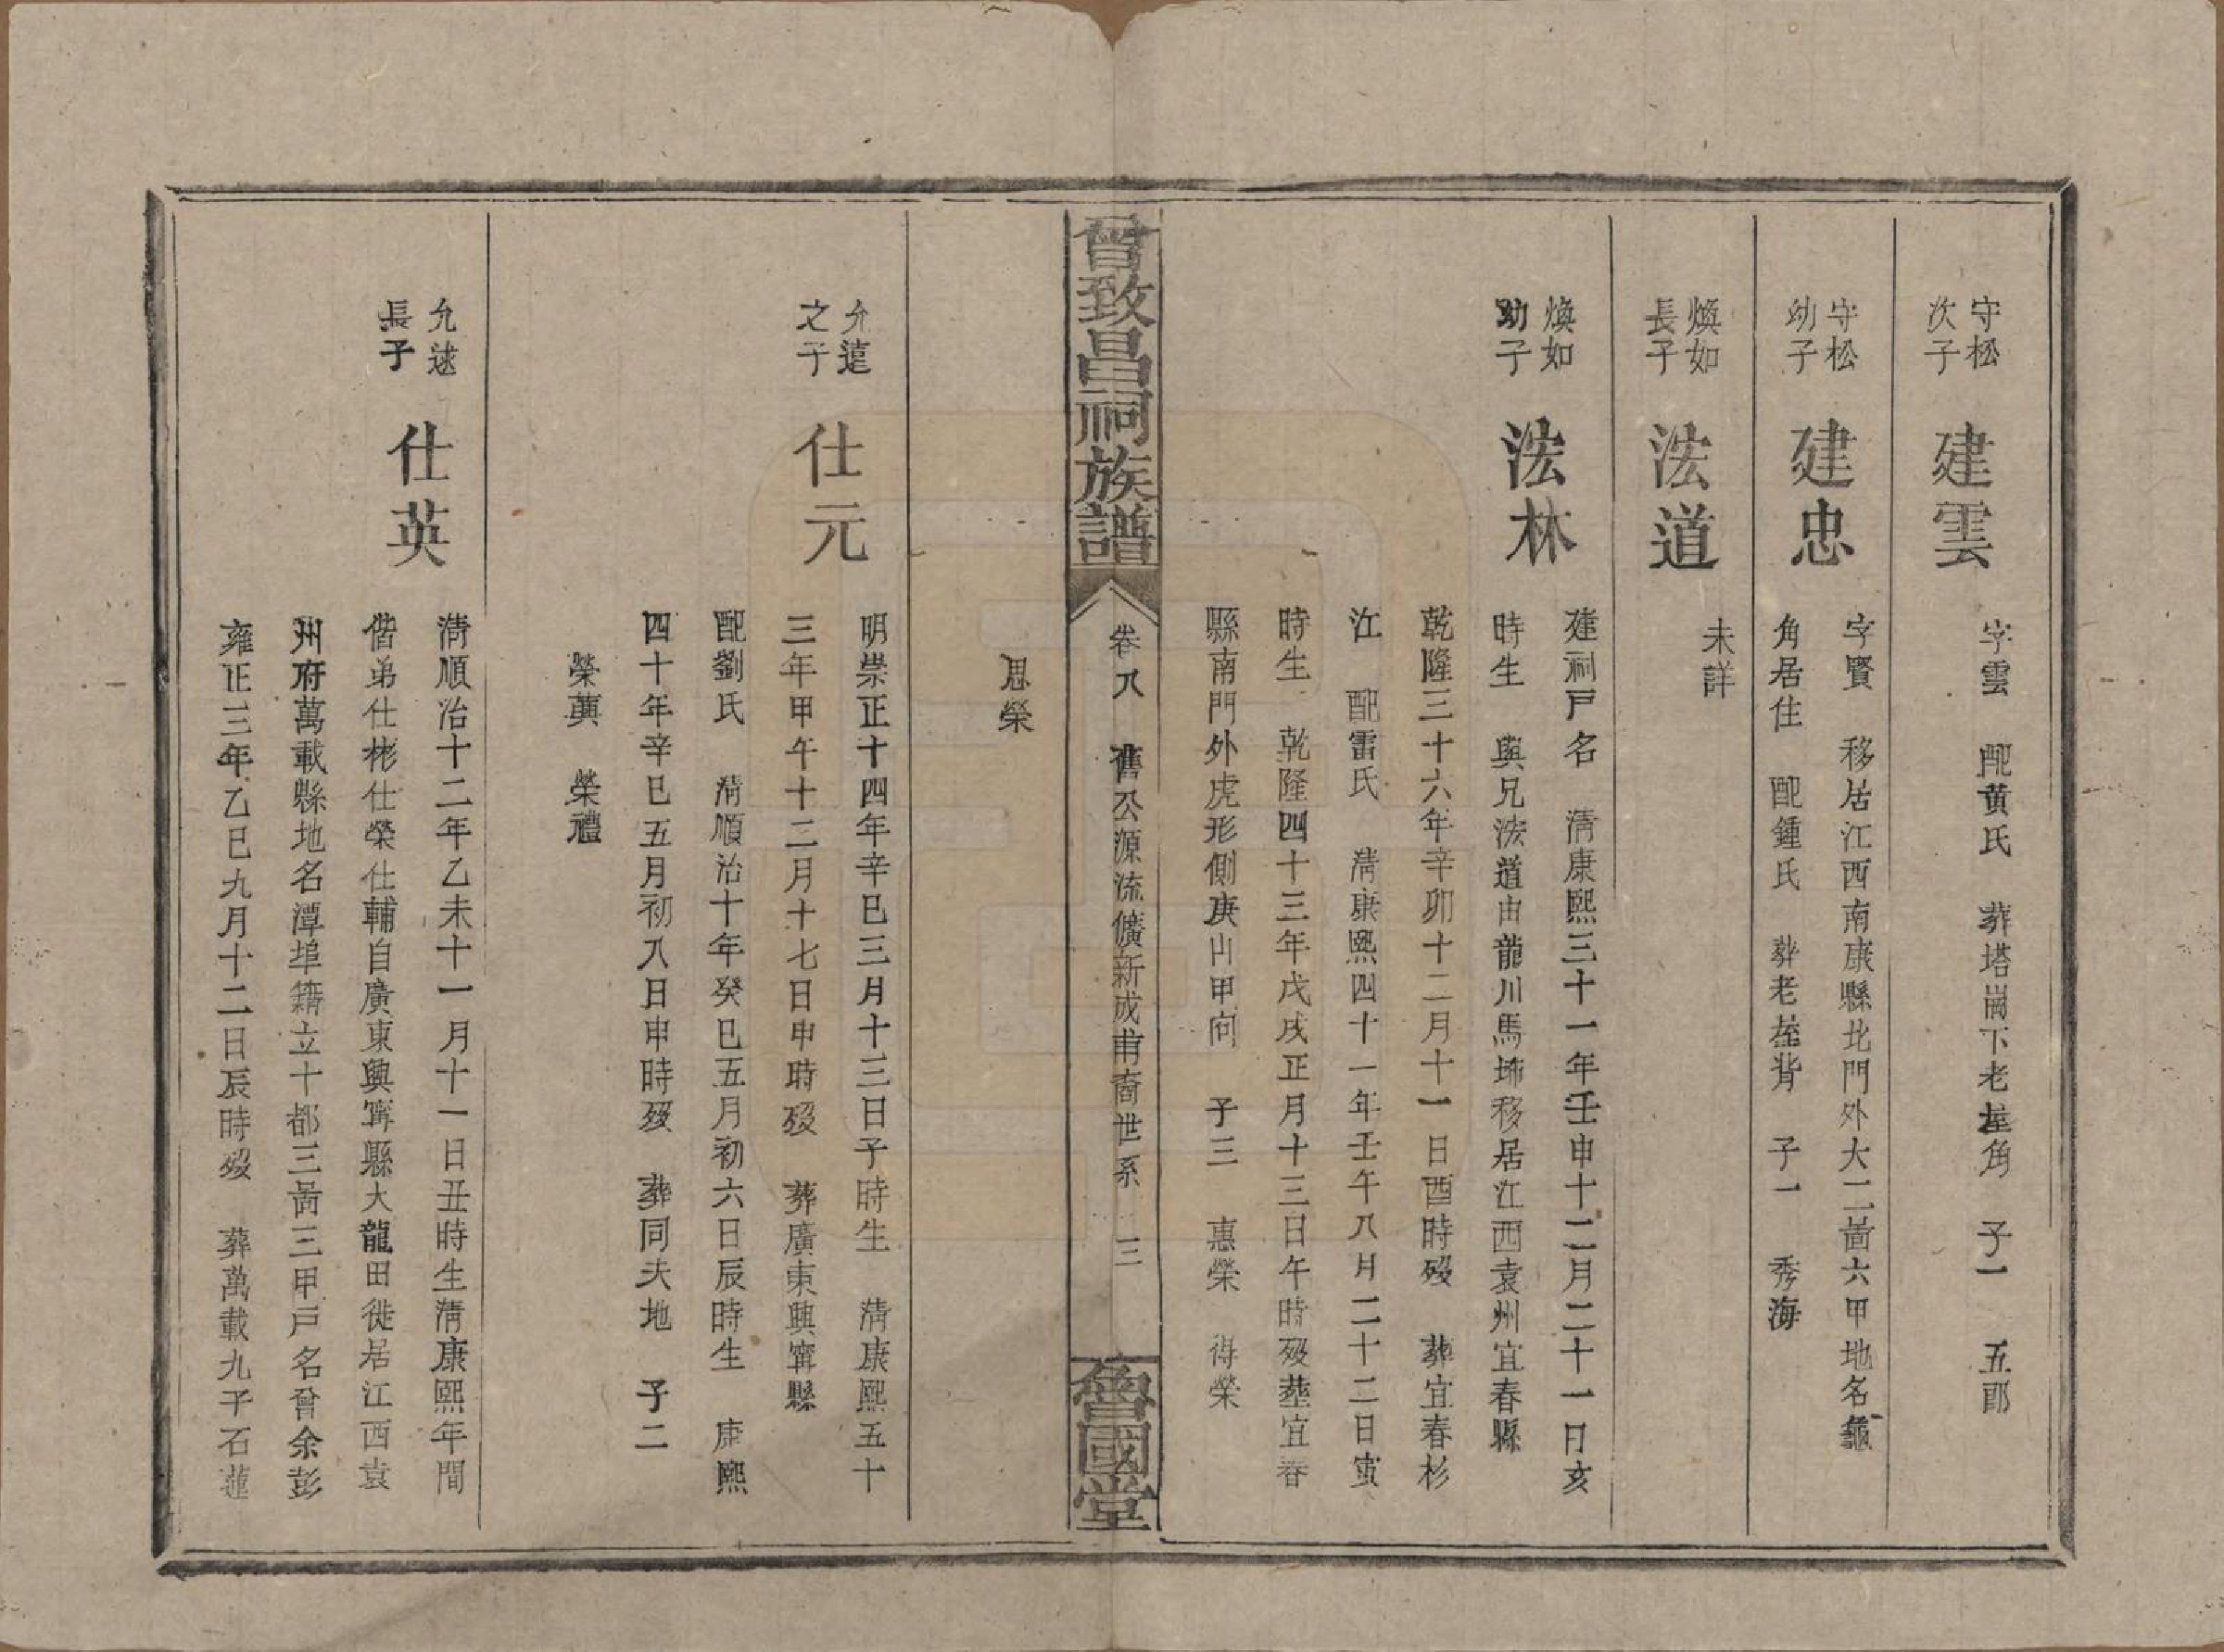 守松
次子
建雲
字雲　配黄氏　葬塔崗下老塟角　子一　五郎
守松
幼子
建忠
字賢　移居江西南康縣北門外大二啚六甲地名龜
角居住　配鍾氏　葬老塟背　子一　秀海
煥如
長子
法道
未詳
煥如
幼子
法林
建祠戸名　淸康熙三十一年壬申十二月二十一日亥
時生　與兄法道由龍川馬埗移居江西袁州宜春縣
乾隆三十六年辛卯十二月十一日酉時歿　葬宜春杉
江　配雷氏　淸康熙四十一年壬午八月二十二日寅
時生　乾隆四十三年戊戌正月十三日午時歿葬宜春
縣南門外虎形側庚山甲向　子三　惠榮　得榮
曾致昌祠族譜
卷八　舊公源流儣新成甫裔世系　三
魯國堂
思榮
允遠
之子
仕元
明崇正十四年辛巳三月十三日子時生　淸康熙五十
三年甲午十二月十七日申時歿　葬廣東興寗縣
配劉氏　淸順治十年癸巳五月初六日辰時生　康熙
四十年辛巳五月初八日申時歿　葬同夫地　子二
榮蓂　榮禮
允逑
長子
仕英
淸順治十二年乙未十一月十一日丑時生淸康熙年間
偕弟仕彬仕榮仕輔自廣東興寗縣大龍田徙居江西袁
州府萬載縣地名潭埠籍立十都三啚三甲戸名曾余彭
雍正三年乙巳九月十二日辰時歿　葬萬載九子石蓮